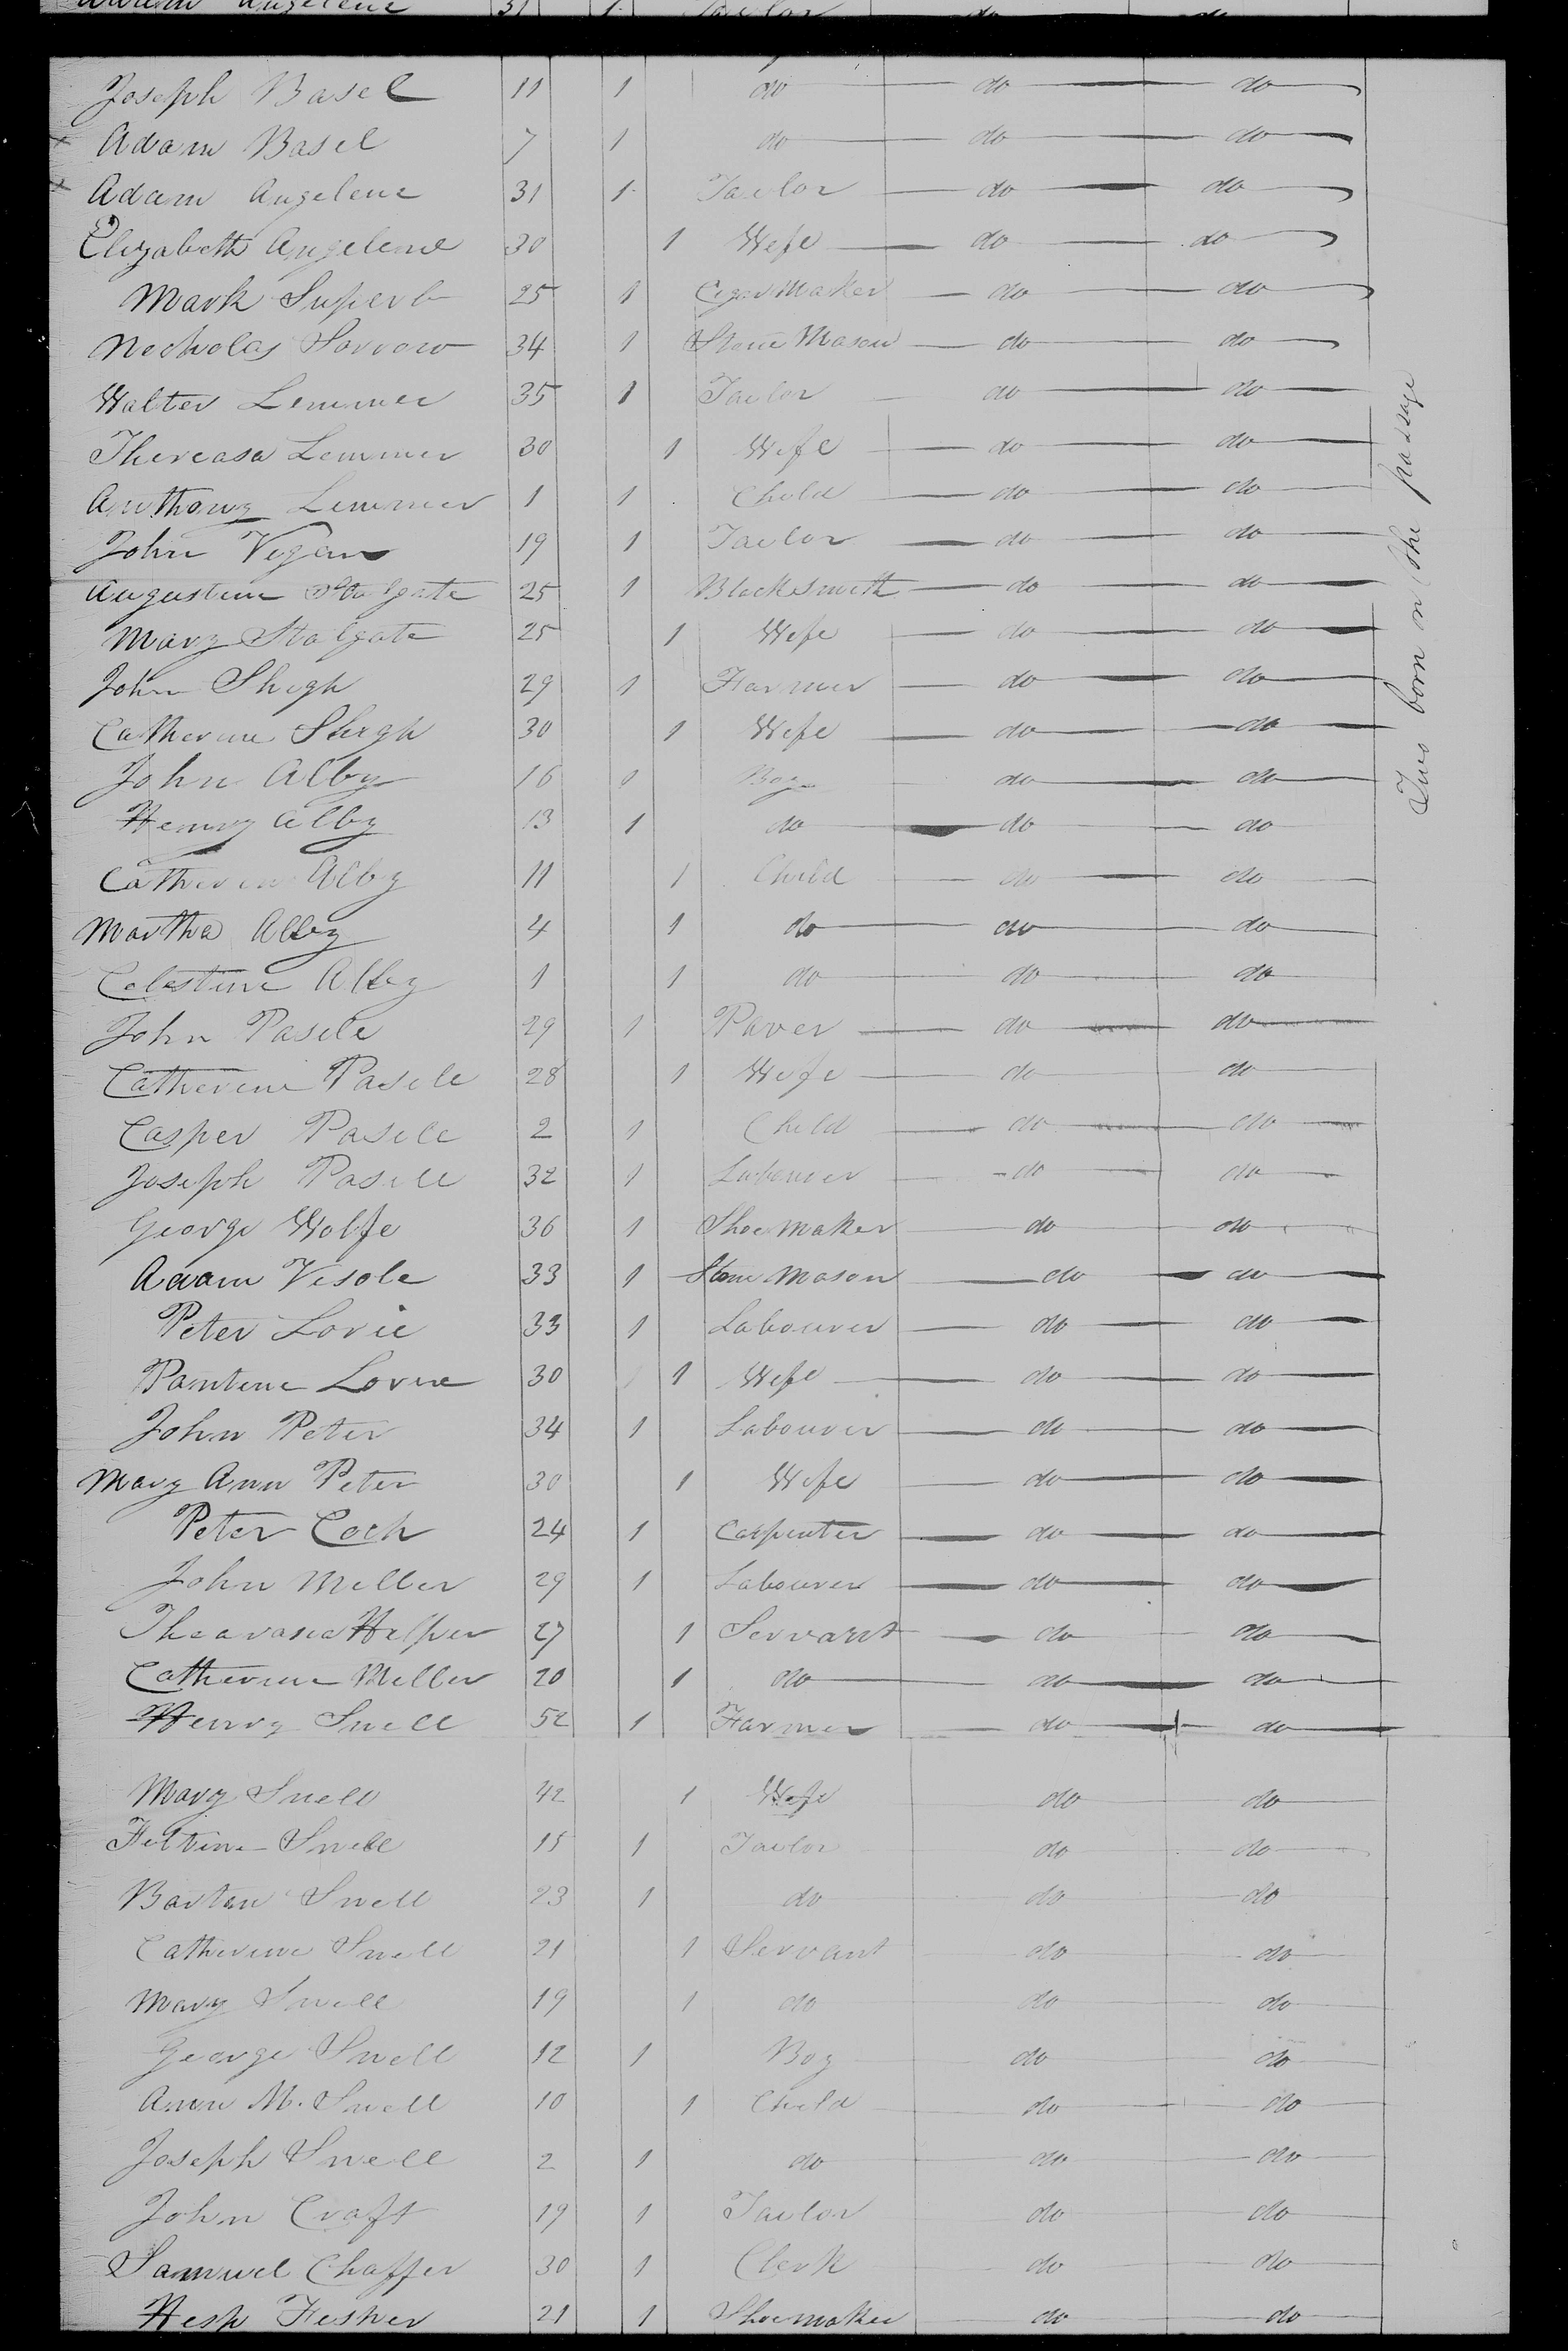 Adam Angelene 31 1 Taelor do do
Joseph Basel 11 1 do do do
Adam Basel 7 1 do do do
Adam Angelene 31 1 Taelor do do
Elizabeth Angelene 30 1 Wefe do do
Mark Superb 25 1 Cegar Maker do do
Necholas Sorrow 34 1 Stone Mason do do
Walter Lemmer 35 1 Taelor do do
Thereasa Lemmer 30 1 Wefe do do
Anthony Lemmer 1 1 Cheld do do
John Vegan 19 1 Taelor do do
Augustine Stalgate 25 1 Blacksmeth do do
Mary Stalgate 25 1 Wefe do do
John Shegh 29 1 Farmer do do
Catherene Shegh 30 1 Wefe do do
John Alby 16 1 Boy do do
Henry Alby 13 1 do do do
Catheren Alby 11 1 Cheld do do
Martha Alby 4 1 do do do
Celestine Alby 1 1 do do do
John Pasele 29 1 Paver do do
Catherene Pasele 28 1 Wefe do do
Casper Pasele 2 1 Cheld do do
Joseph Pasele 32 1 Labourer do do
George Wolfe 36 1 Shoe Maker do do
Adam Vesole 33 1 Stone Mason do do
Peter Lorie 33 1 Labourer do do
Pantene Lorie 30 1 Wefe do do
John Peter 34 1 Labourer do do
Mary Ann Peter 30 1 Wefe do do
Peter Coch 24 1 Carpenter do do
John Meller 29 1 Labourer do do
Thearasa Helper 27 1 Servant do do
Catherene Meller 20 1 do do do
Henry Snell 52 1 Farmer do do
Mary Snell 42 1 Wefe do do
Feltine Snell 15 1 Taelor do do
Bartan Snell 23 1 do do do
Catherene Snell 21 1 Servant do do
Mary Snell 19 1 do do do
George Snell 12 1 Boy do do
Ann M. Snell 10 1 Cheld do do
Joseph Snell 2 1 do do do
John Craft 19 1 Taelor do do
Samuel Chaffer 30 1 Clerk do do
Hesp Fesher 21 1 Shoemaker do do
Two born on the passage